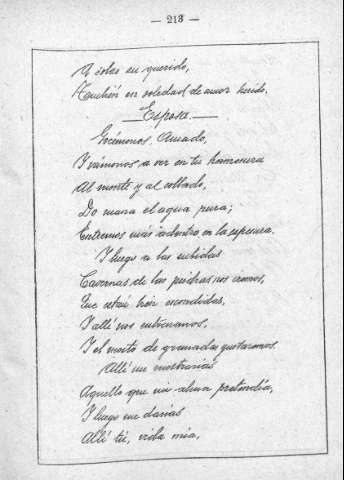 — 213 —
A solas su querido,
También en soledad de amor herido.
—Esposa.—
Gocémonos, Amado,
I vámonos a ver en tu hermosura
Al monte y al collado,
Do mana el agua pura;
Entremos más adentro en la espesura.
I luego a las subidas
Cavernas de las piedras nos iremos,
Que están bien escondidas,
I allí nos entraremos,
I el mosto de granadas gustaremos.
Allí me mostrarías
Aquello que mi alma pretendía,
I luego me darías
Allí tú, vida mía,